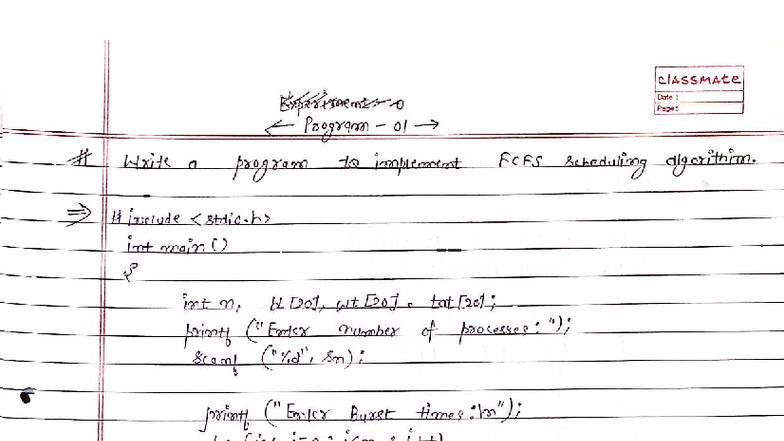 classmate
Date :
Page :
Experiment - 0
← Program - 01 →
# Write a program to implement FCFS scheduling algorithm.
⇒ # include <stdio.h>
int main ()
{
int n, bt [20], wt [20], tat [20];
printf ("Enter number of processes: ");
scanf ("%d", &n);
printf ("Enter Burst times:\n");